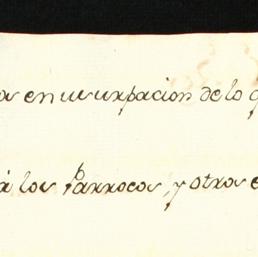 en usurpacion de lo
á los Parrocos, y otros